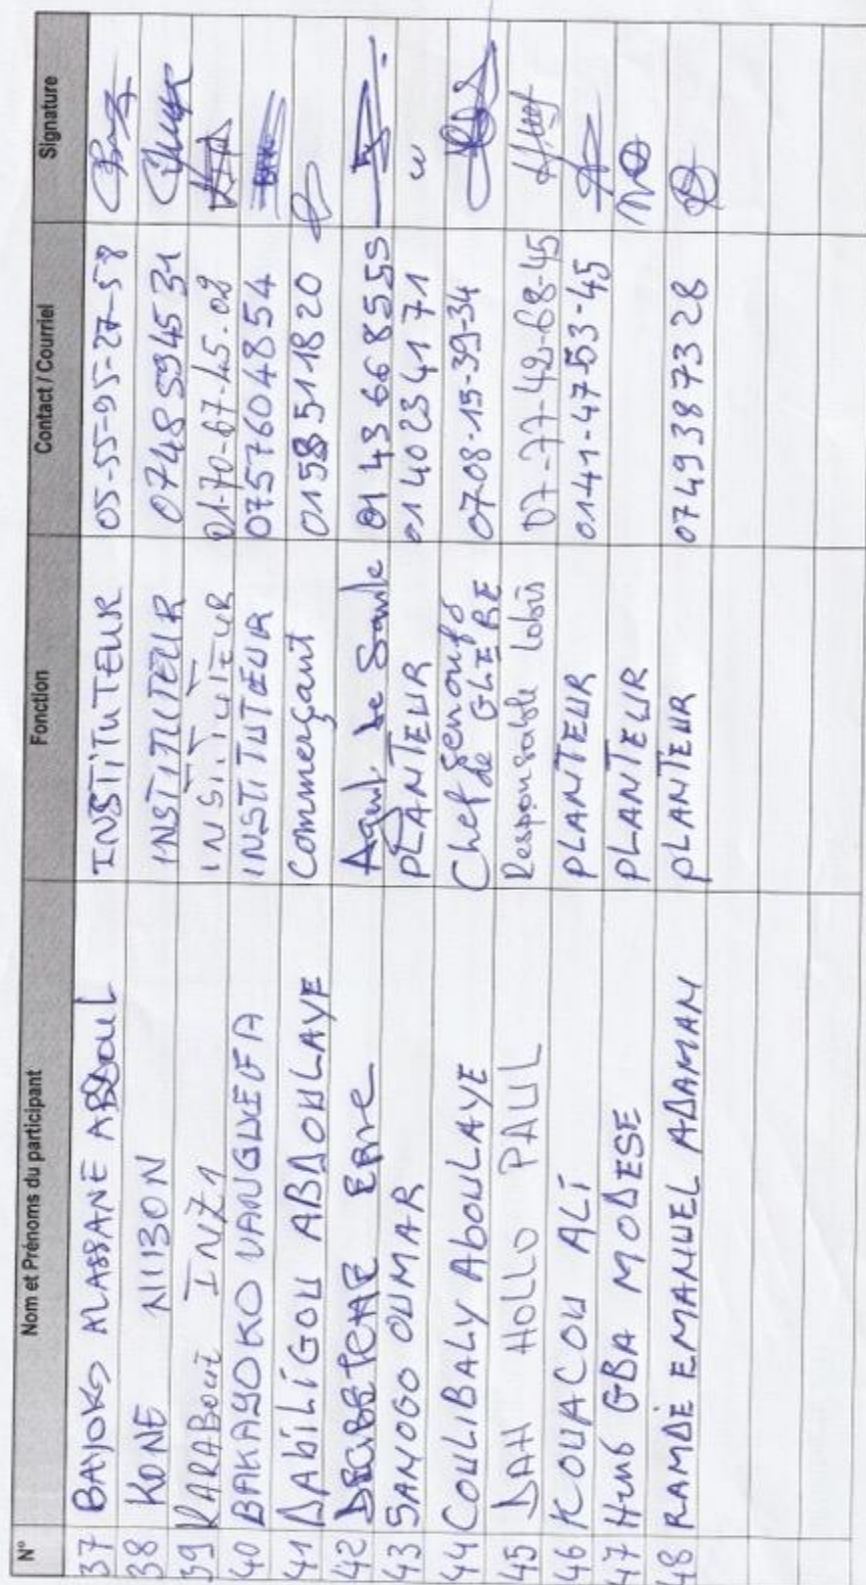 N° Nom et Prénoms du participant Fonction Contact / Courriel Signature
37 BAYOKO ALASSANE ABDOUL INSTITUTEUR 05-55-95-27-58
38 KONE NIIBON INSTITUTEUR 0748594531
39 KARABOUI INZA INSTITUTEUR 01-70-67-45-02
40 BAKAYOKO VANGUEFA INSTITUTEUR 0757604854
41 DABILIGOU ABDOULAYE Commerçant 0158511820
42 Agent de Sante 0143668555
43 SANOGO OUMAR PLANTEUR 0140234171
44 COULIBALY ABOULAYE Chef Senoufo de GLEBE 07-08-15-39-34
45 DAH HOLLO PAUL Responsable Lobis 07-77-42-68-45
46 KOUACOU ALI PLANTEUR 0141-4753-45
47 GBA MODESE PLANTEUR
48 RAMDE EMANUEL ADAMAN PLANTEUR 0749387328